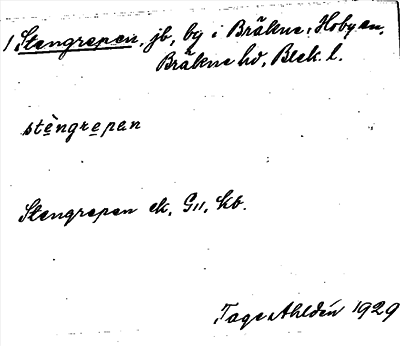 1 Stengrepen, jb, by i Bräkne-Hoby sn,
Bräkne hd, Blek. l.
stèngrepan
Stengrepen ek. G11, kb.
Tage Ahldén 1929